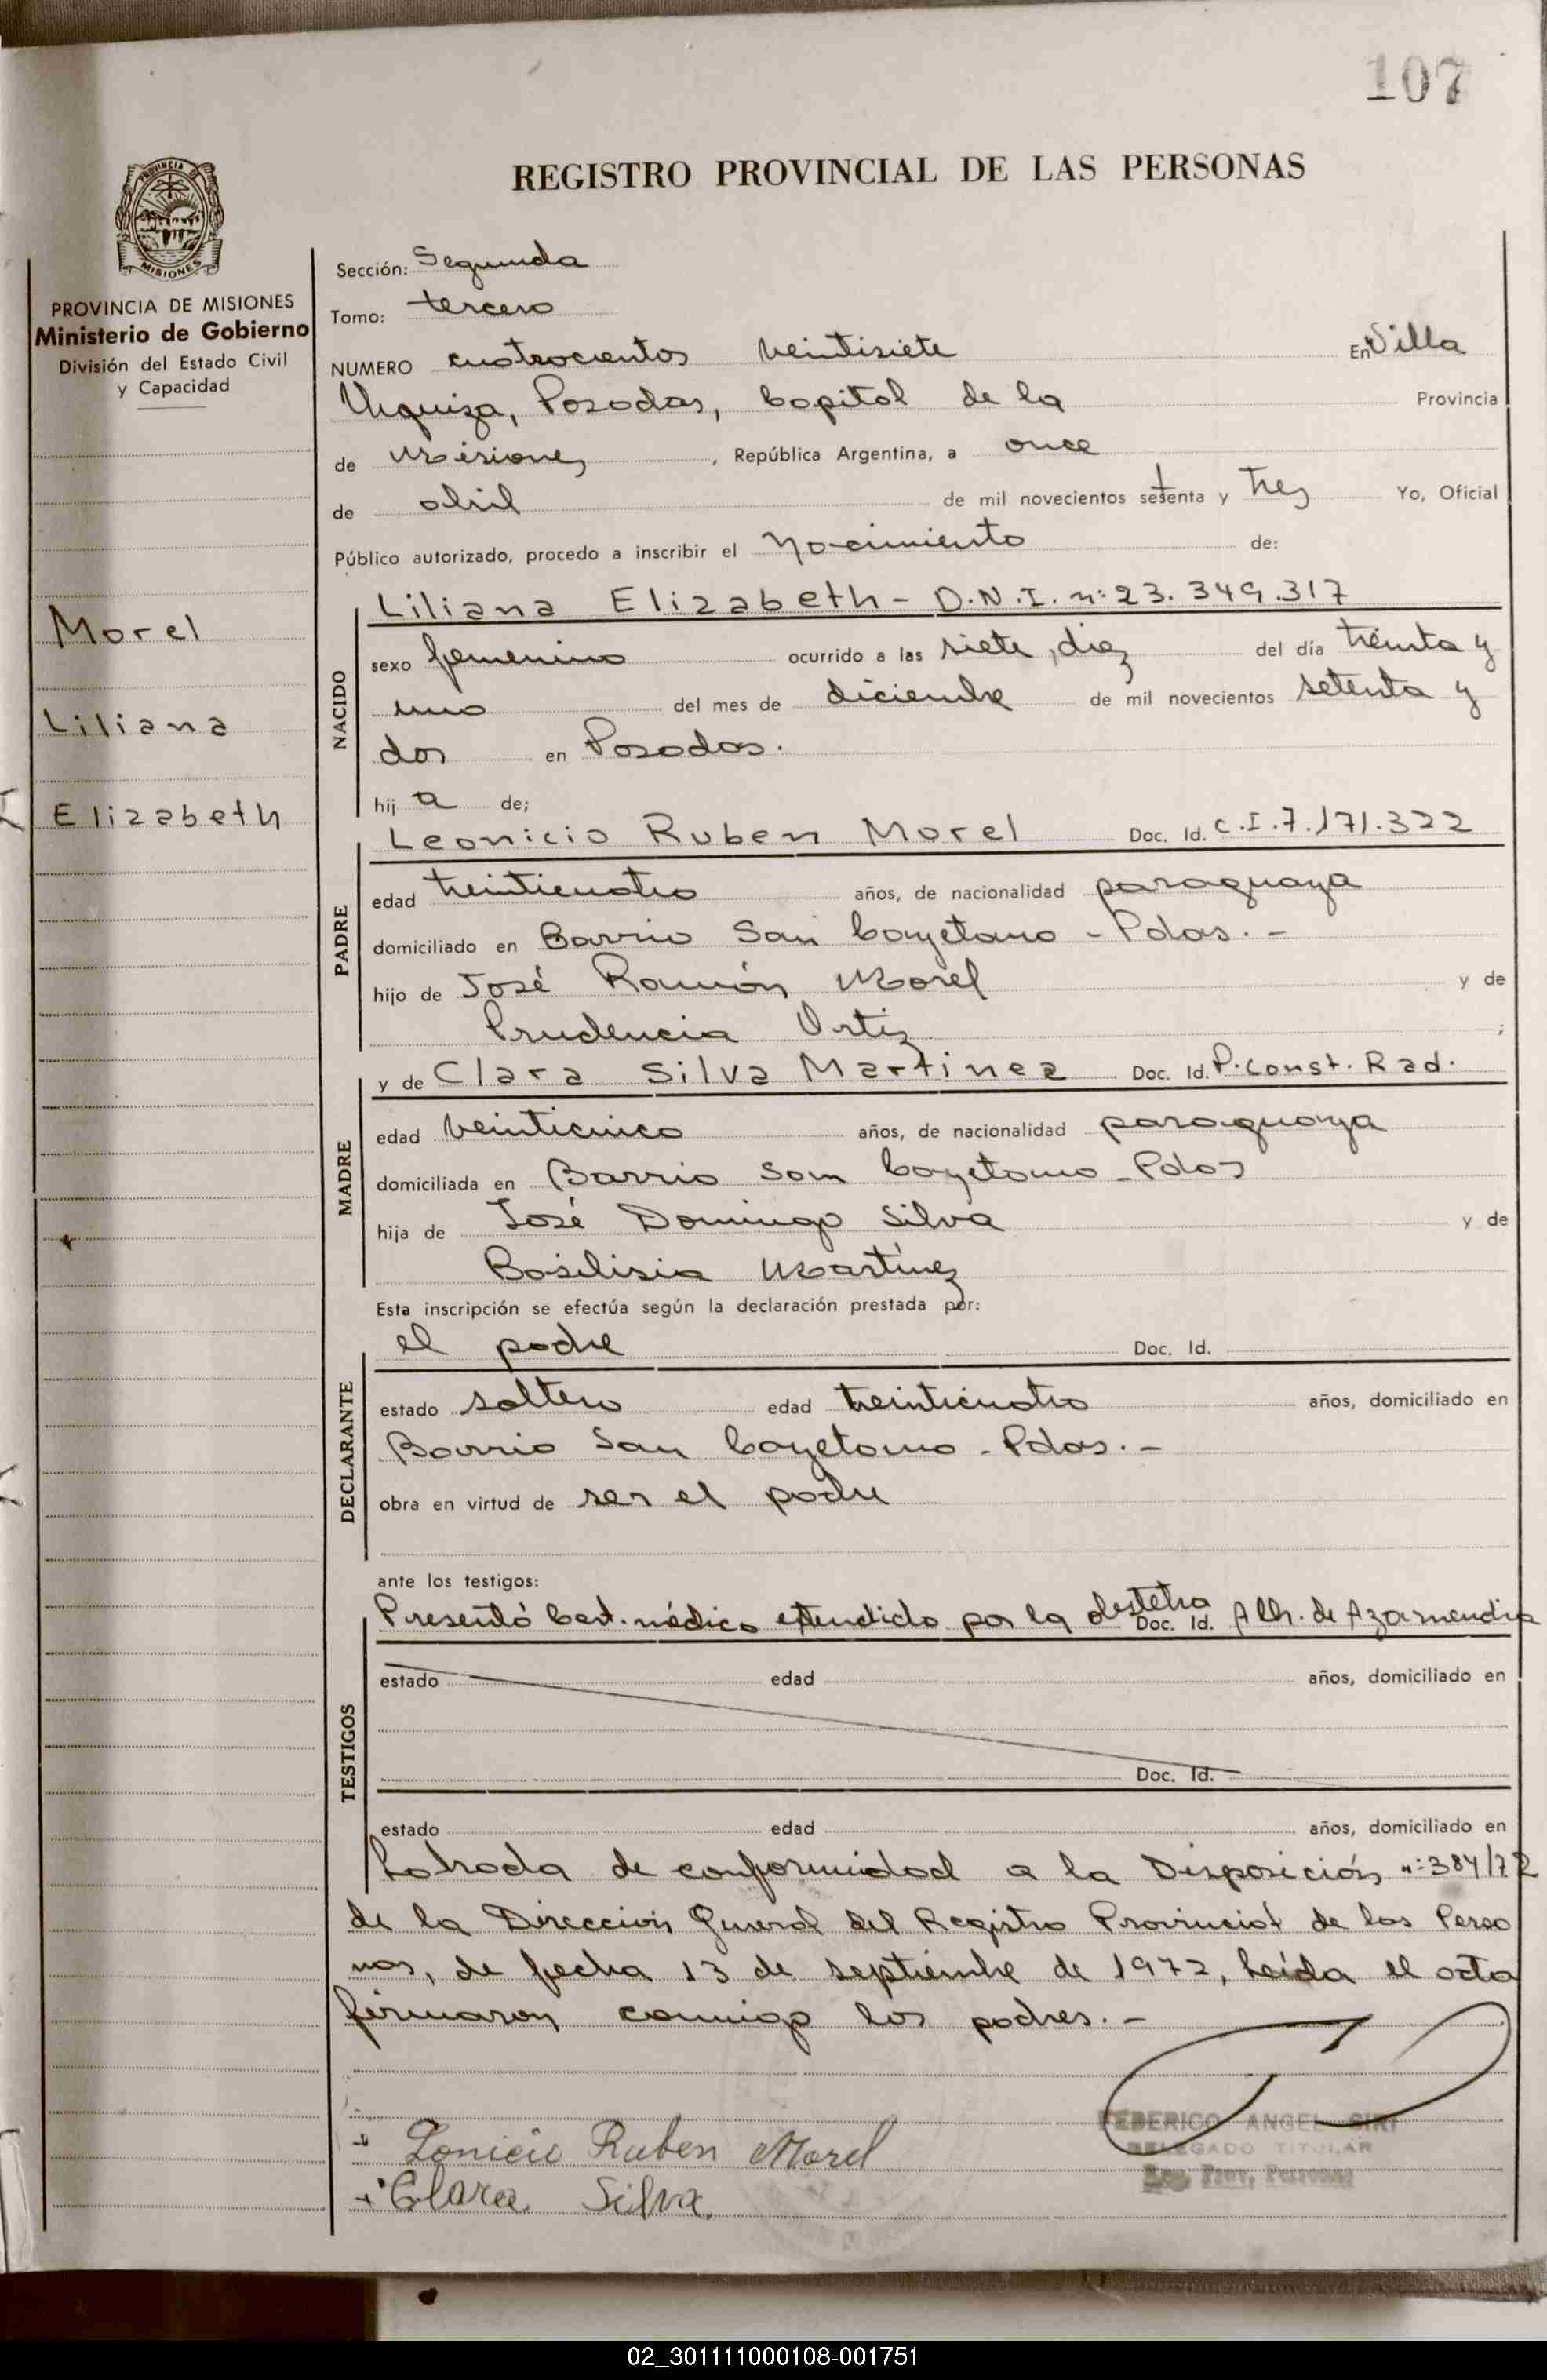 107
REGISTRO PROVINCIAL DE LAS PERSONAS
PROVINCIA MISIONES
PROVINCIA DE MISIONES
Ministerio de Gobierno
División del Estado Civil
y Capacidad
Morel
Liliana
Elizabeth
Sección: Segunda
Tomo: tercero
NUMERO cuatrocientos veintisiete En Villa
Urquiza, Posadas, Capital de la Provincia
de Misiones, República Argentina, a once
de abril de mil novecientos setenta y tres Yo, Oficial
Público autorizado, procedo a inscribir el Nacimiento de:
NACIDO
Liliana Elizabeth - D.N.I. nº 23.349.317
sexo femenino ocurrido a las siete, diez del día treinta y
uno del mes de diciembre de mil novecientos setenta y
dos en Posadas.
hij a de;
PADRE
Leonicio Ruben Morel Doc. Id. C.I.7.171.322
edad treinticuatro años, de nacionalidad paraguaya
domiciliado en Barrio San Cayetano - Pdas. -
hijo de José Ramón Morel y de
Prudencia Ortiz ;
MADRE
y de Clara Silva Martinez Doc. Id. P. Const. Rad.
edad veinticinco años, de nacionalidad paraguaya
domiciliada en Barrio San Cayetano - Pdas
hija de José Domingo Silva y de
Basilisia Martínez
Esta inscripción se efectúa según la declaración prestada por:
DECLARANTE
el padre Doc. Id.
estado soltero edad treinticuatro años, domiciliado en
Barrio San Cayetano - Pdas. -
obra en virtud de ser el padre
ante los testigos:
TESTIGOS
Presentó Cert. médico extendido por la obstetra Doc. Id. de Azamendia
estado edad años, domiciliado en
Doc. Id.
estado edad años, domiciliado en
Labrada de conformidad a la Disposición nº 384/72
de la Dirección General del Registro Provincial de las Perso
nas, de fecha 13 de septiembre de 1972, leída el acta
firmaron conmigo los padres. -
Lonicio Ruben Morel
Clara Silva.
FEDERICO ANGEL SIRI
DELEGADO TITULAR
Reg. Prov. Personas
02_301111000108-001751